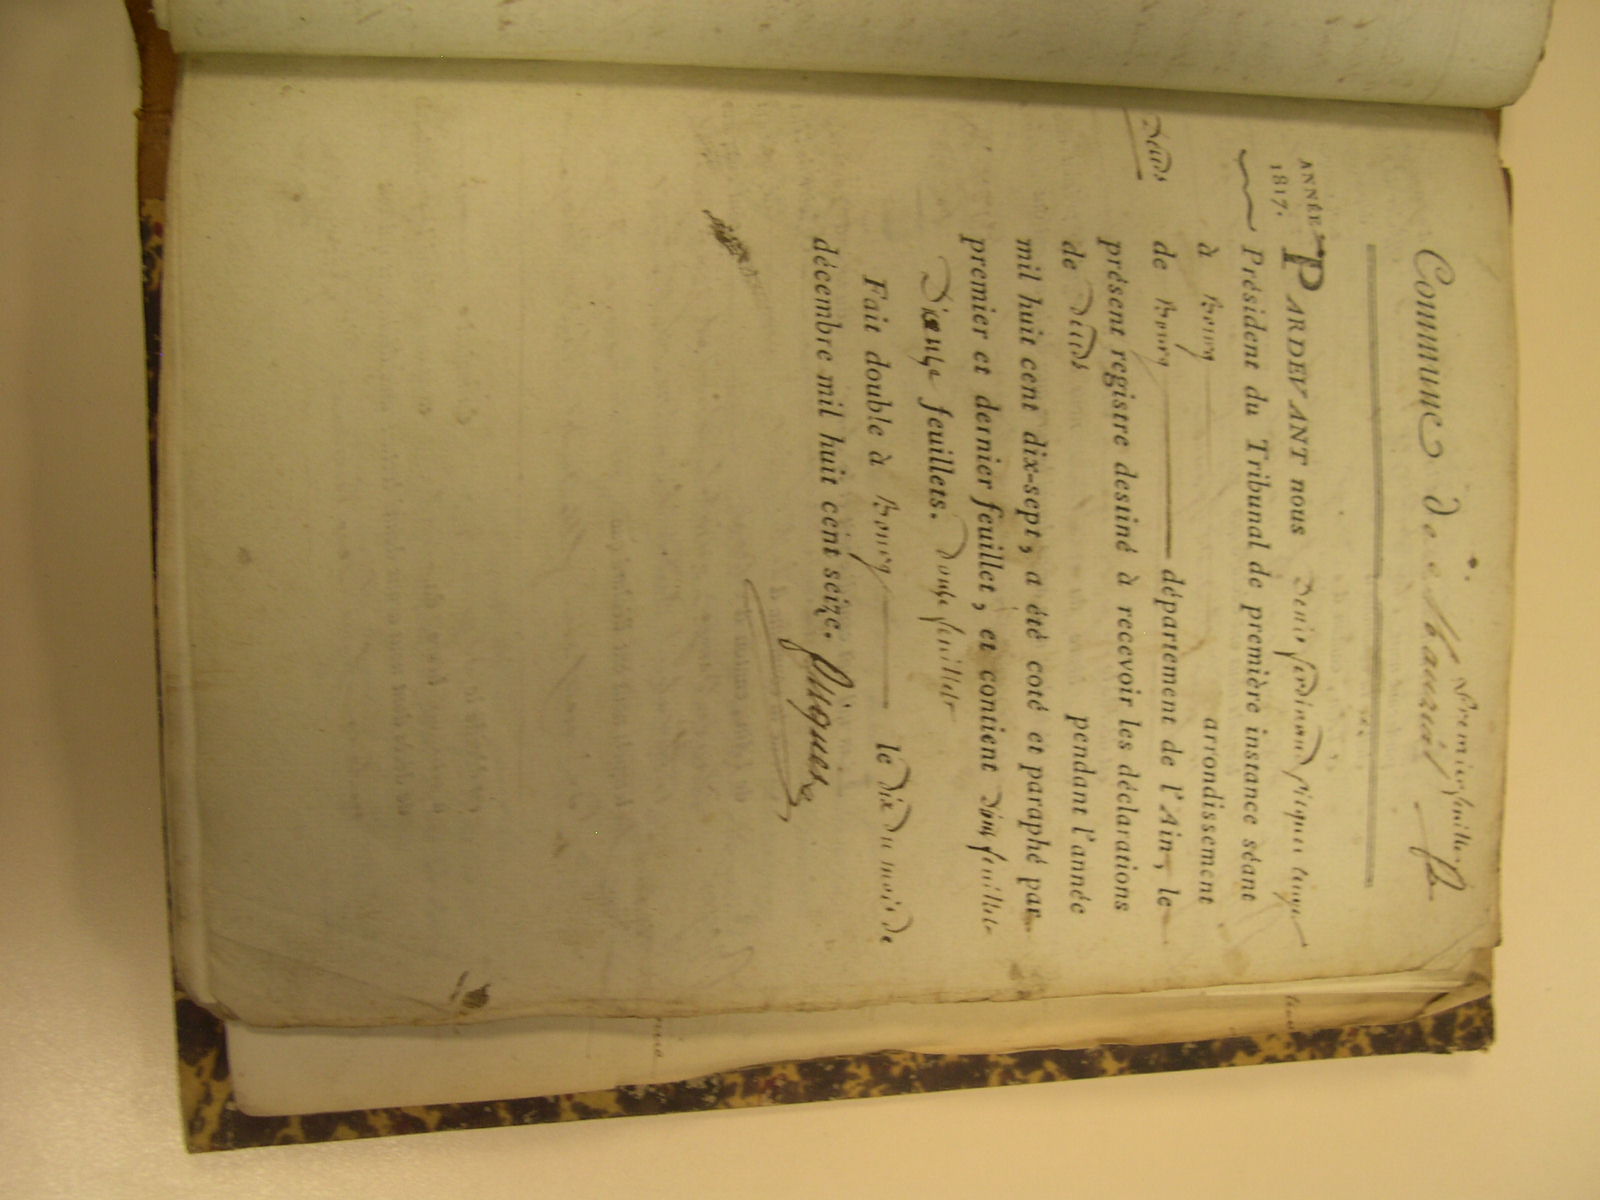 Premier feuillet
Commune de
ANNÉE
1817.
PARDEVANT nous Denis ferdinand picquet juge
Président du Tribunal de première instance séant
à Bourg arrondissement
de Bourg département de l'Ain, le
Décès
présent registre destiné à recevoir les déclarations
de Décès pendant l'année
mil huit cent dix-sept, a été coté et paraphé par
premier et dernier feuillet, et contient Douze feuillets
feuillets. Douze feuillets
Fait double à Bourg le dix Du mois de
décembre mil huit cent seize. Picquet